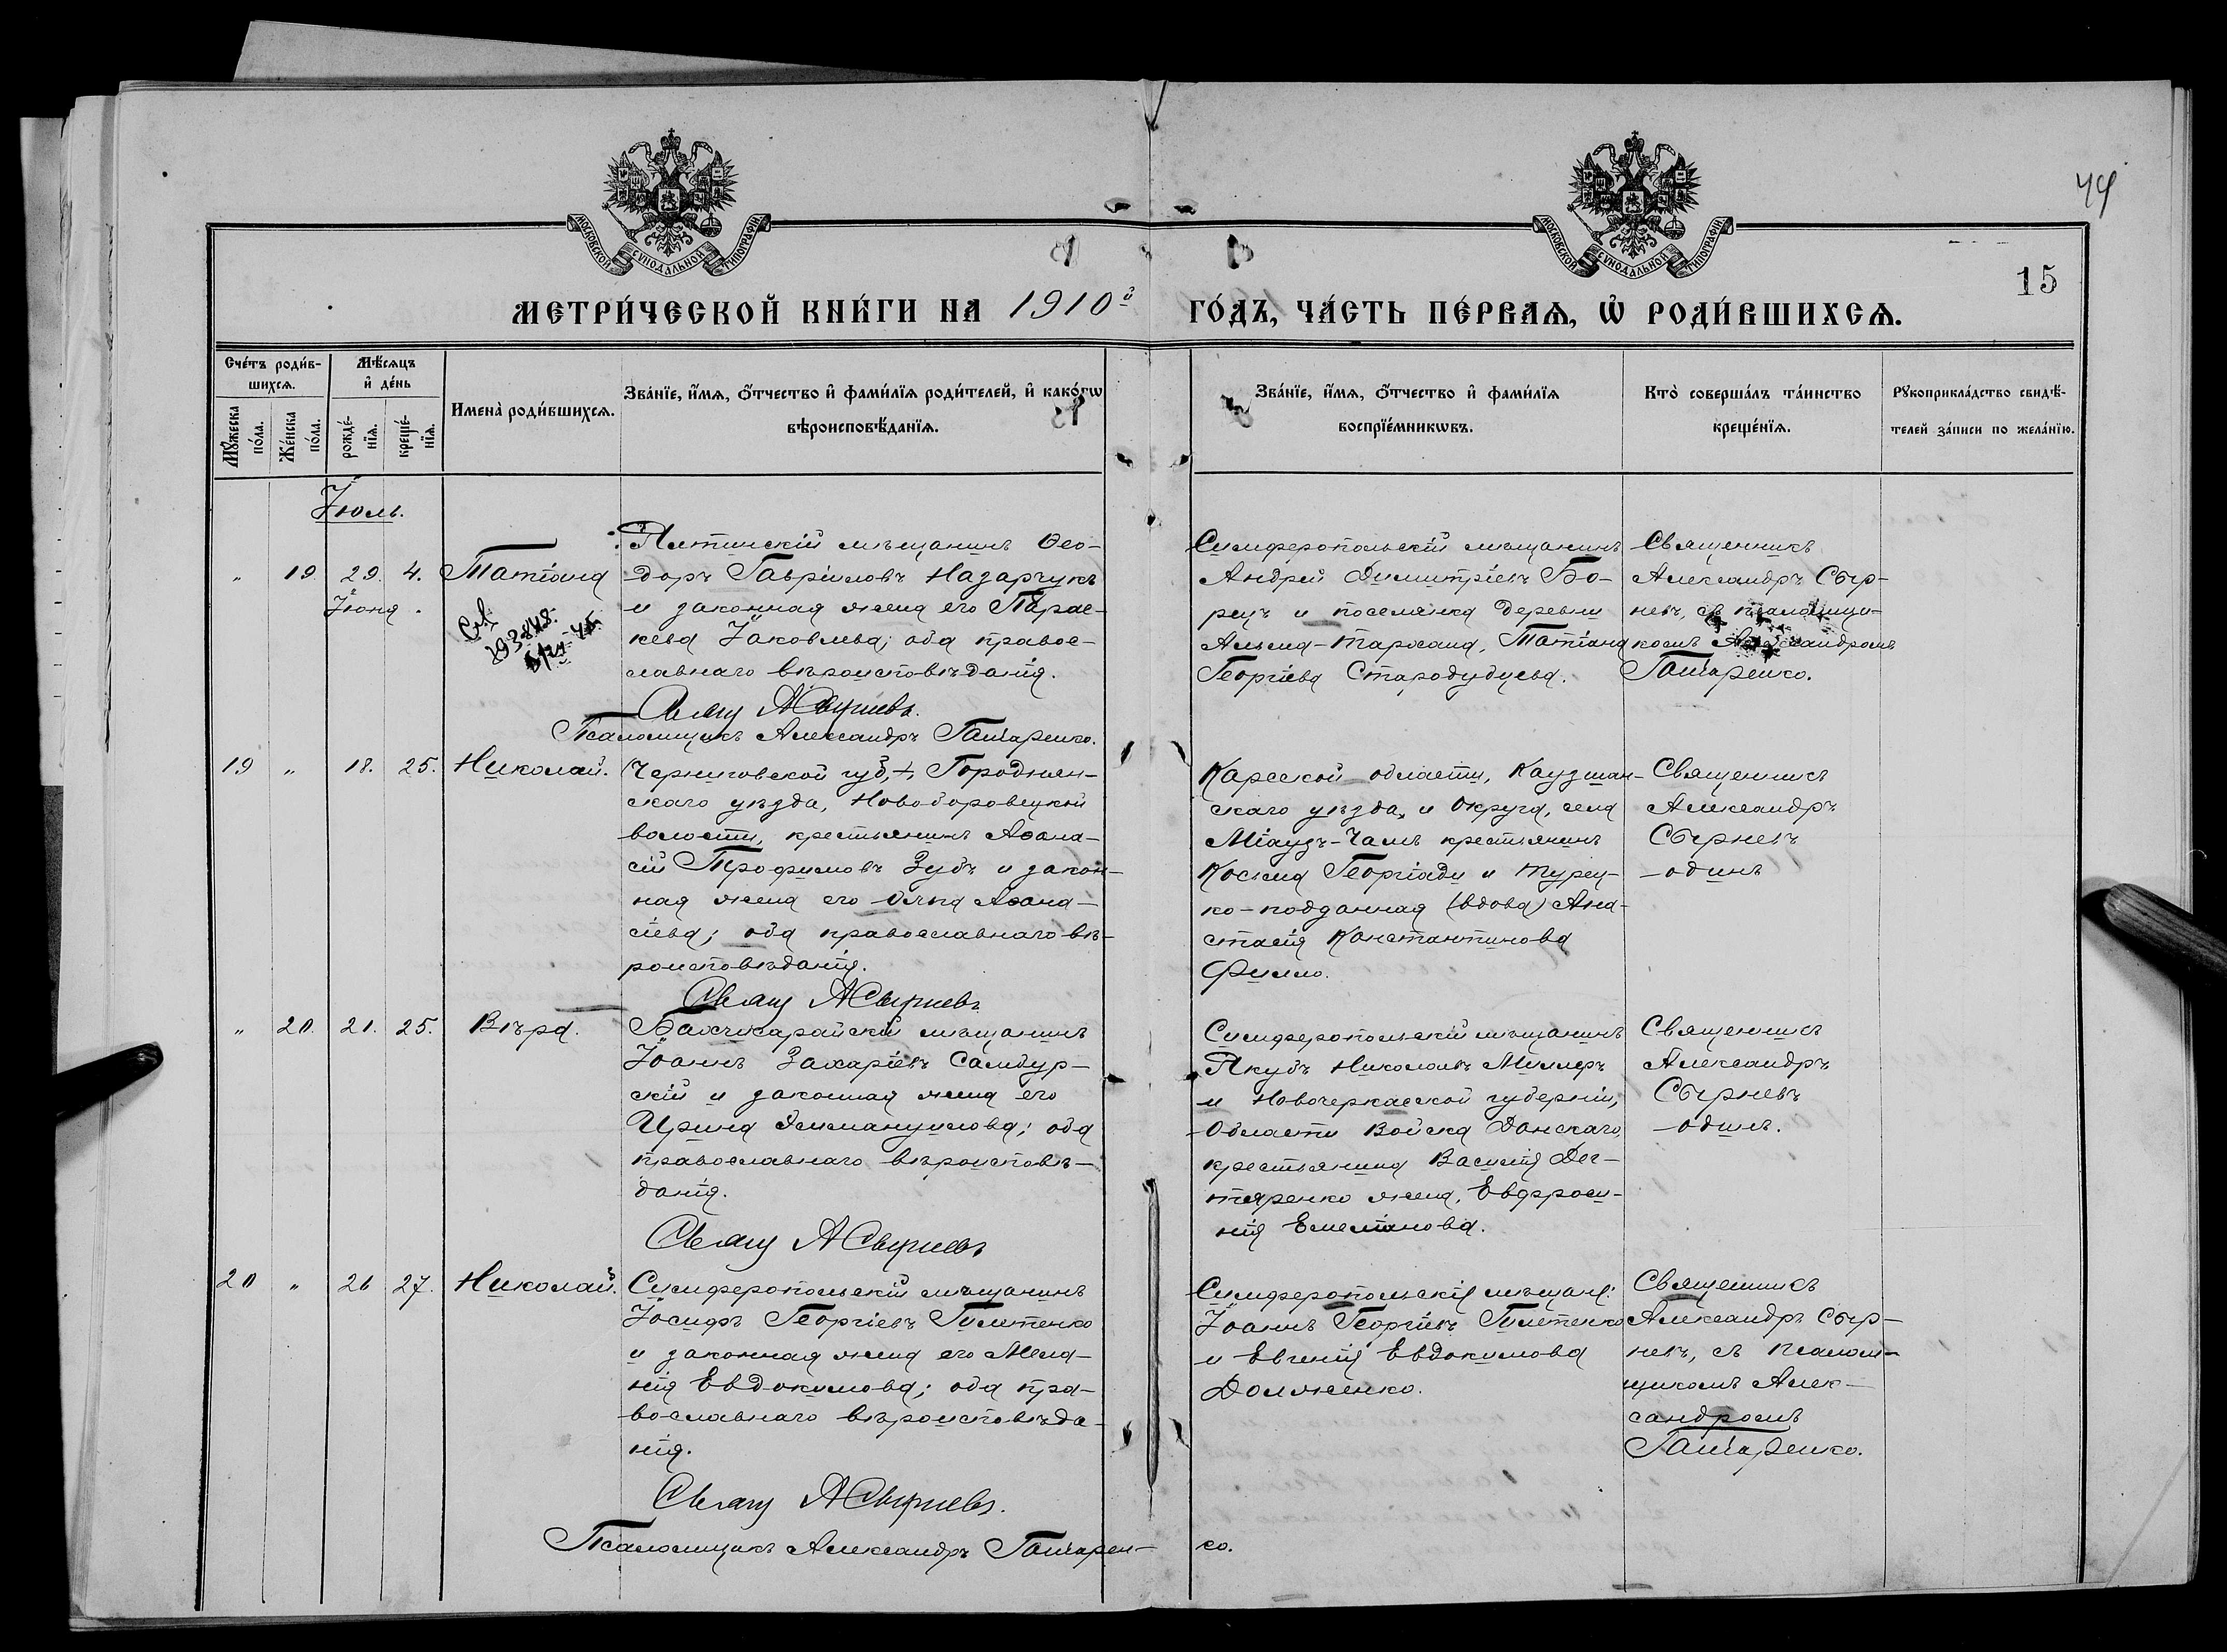 44
МОСКОВСКОЙ СѴНОДАЛЬНОЙ ТИПОГРАФІИ
МОСКОВСКОЙ СѴНОДАЛЬНОЙ ТИПОГРАФІИ
15
МЕТРИ́ЧЕСКОЙ КНИ́ГИ НА 1910й ГО́ДЪ, ЧА́СТЬ ПЕ́РВАѦ, Ѡ РОДИ́ВШИХСѦ.
Сче́тъ роди́в-
шихсѧ.
Мѣ́сѧцъ
и де́нь
Мꙋжеска
по́ла.
Же́нска
по́ла.
рожде́-
нїѧ.
креще́-
нїѧ.
Имена̀ роди́вшихсѧ.
Зва́нїе, и́мѧ, о́тчество и фами́лїѧ роди́телей, и како́гѡ
вѣроисповѣ́данїѧ.
Зва́нїе, и́мѧ, о́тчество и фами́лїѧ
воспрїе́мникѡвъ.
Кто̀ соверша́лъ та́инство
креще́нїѧ.
Рꙋкоприкла́дство свидѣ́-
телей за́писи по жела́нїю.
Іюль.
" 19 29. 4. Татіана
Іюня.
Ялтинскій мѣщанинъ Ѳео-
доръ Гавріиловъ Назарчукъ
и законная жена его Парас-
кева Іаковлева; оба правос-
лавнаго вѣроисповѣданія.
Свящ АСырневъ.
Псаломщикъ Александръ Гончаренко.
Симферопольскій мѣщанинъ
Андрей Димитріевъ Бо-
рецъ и поселянка деревни
Альма-Тархана, Татіана
Георгіева Стародубцева.
Священникъ
Александръ Сыр-
невъ, съ псаломщи-
комъ Александромъ
Гончаренко.
19 " 18. 25. Николай.
Черниговской губ, Городнян-
скаго уѣзда, Новоборовецкой
волости, крестьянинъ Аѳана-
сій Трофимовъ Зубъ и закон-
ная жена его Ольга Аѳана-
сіева; оба православнаго вѣ-
роисповѣданія.
Свящ АСырневъ
Карсской области, Каузман-
скаго уѣзда, и Округа, села
Міаузъ-Чамъ крестьянинъ
Косма Георгіади и турец-
ко-подданная (вдова) Ана-
стасія Константинова
Филло.
Священникъ
Александръ
Сырневъ
одинъ
" 20. 21. 25. Вѣра.
Бахчисарайскій мѣщанинъ
Іоаннъ Захаріевъ Самбур-
скій и законная жена его
Ирина Эммануилова; оба
православнаго вѣроисповѣ-
данія.
Свящ АСырневъ
Симферопольскій мѣщанинъ
Якубъ Николаевъ Миллеръ
и Новочеркасской губерніи,
Области Войска Донскаго,
крестьянина Василія Дег-
тяренко жена, Евфроси-
нія Емеліанова.
Священникъ
Александръ
Сырневъ
одинъ.
20 " 26 27. Николай.
Симферопольскій мѣщанинъ
Іосифъ Георгіевъ Плетенко
и законная жена его Мела-
нія Евдокимова; оба пра-
вославнаго вѣроисповѣда-
нія.
Свящ АСырневъ.
Псаломщикъ Александръ Гончарен-
ко.
Симферопольскія мѣщане:
Іоаннъ Георгіевъ Плетенко
и Евгенія Евдокимова
Долженко.
Священникъ
Александръ Сыр-
невъ, съ псалом-
щикомъ Алек-
сандромъ
Гончаренко.